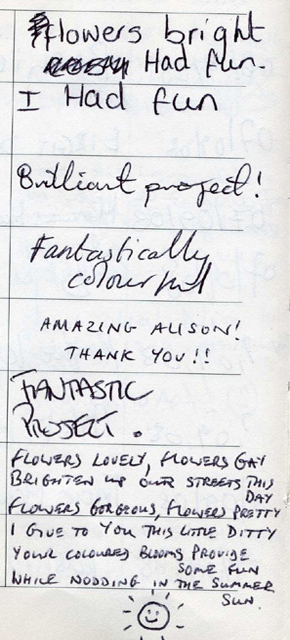 flowers bright
Had fun.
I Had fun
Brilliant project!
Fantastically
colourful
AMAZING ALISON!
THANK YOU!!
FANTASTIC
PROJECT.
FLOWERS LOVELY, FLOWERS GAY
BRIGHTEN UP OUR STREETS THIS
DAY
FLOWERS GORGEOUS, FLOWERS PRETTY
I GIVE TO YOU THIS LITTLE DITTY
YOUR COLOURED BLOOMS PROVIDE
SOME FUN
WHILE NODDING IN THE SUMMER
SUN.